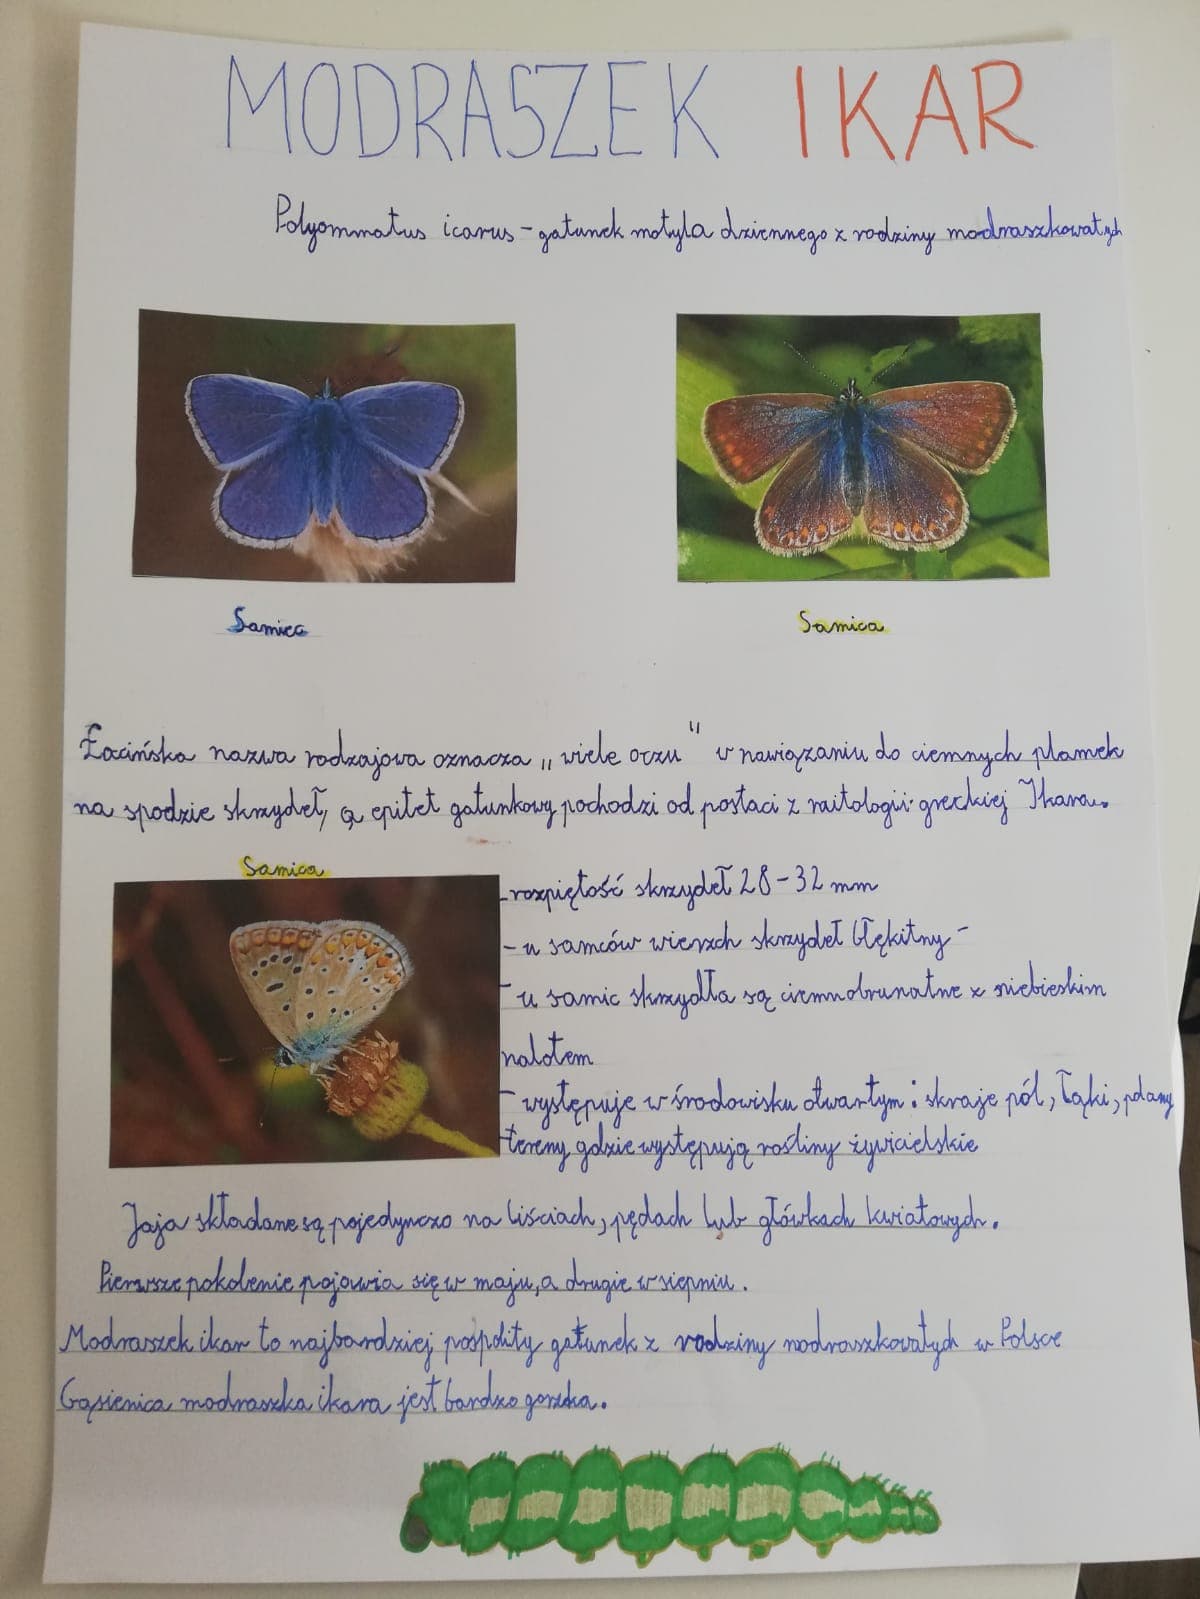 MODRASZEK IKAR
Polyommatus icarus - gatunek motyla dziennego z rodziny modraszkowatych
Samiec
Samica
Łacińska nazwa rodzajowa oznacza „wiele oczu" w nawiązaniu do ciemnych plamek
na spodzie skrzydeł, a epitet gatunkowy pochodzi od postaci z mitologii greckiej Ikara.
Samica
- rozpiętość skrzydeł 28-32 mm
- u samców wierzch skrzydeł błękitny -
- u samic skrzydła są ciemnobrunatne z niebieskim
nalotem
- występuje w środowisku otwartym: skraje pól, łąki, polany
tereny gdzie występują rośliny żywicielskie
Jaja składane są pojedynczo na liściach, pędach lub główkach kwiatowych.
Pierwsze pokolenie pojawia się w maju, a drugie w sierpniu.
Modraszek ikar to najbardziej pospolity gatunek z rodziny modraszkowatych w Polsce
Gąsienica modraszka ikara jest bardzo gorzka.